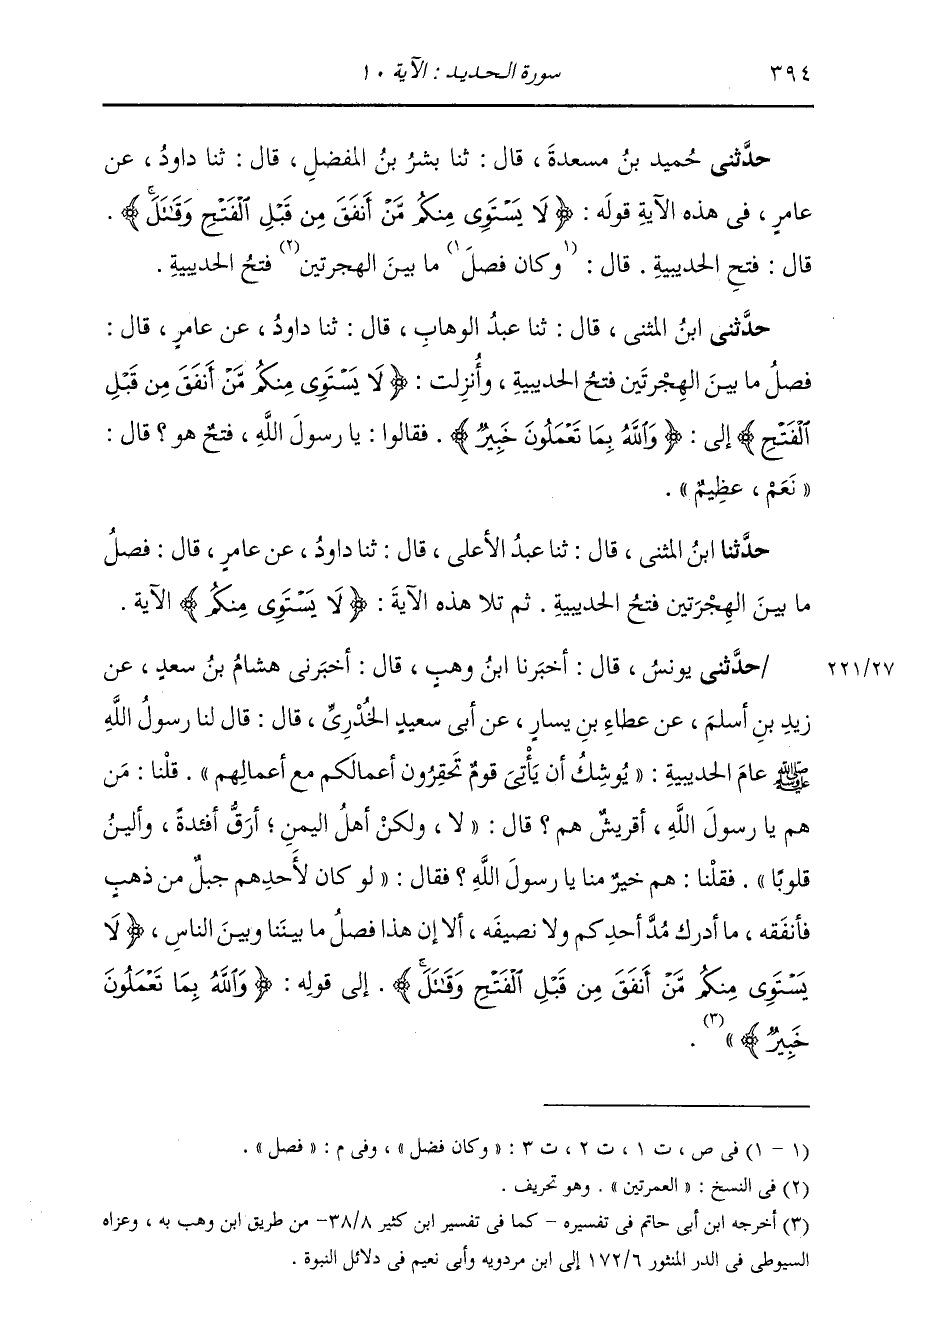 ٣٩٤ سورة الحديد : الآية ١٠
حدَّثنى حُميد بنُ مسعدةَ ، قال : ثنا بشرُ بنُ المفضلِ ، قال : ثنا داودُ ، عن
عامرٍ ، فى هذه الآيةِ قولَه : ﴿ لَا يَسْتَوِى مِنكُم مَّنْ أَنفَقَ مِن قَبْلِ ٱلْفَتْحِ وَقَٰتَلَۚ ﴾ .
قال : فتحِ الحديبيةِ . قال : (١) وكان فصلَ (١) ما بينَ الهجرتين (٢) فتحُ الحديبيةِ .
حدَّثنى ابنُ المثنى ، قال : ثنا عبدُ الوهابِ ، قال : ثنا داودُ ، عن عامرٍ ، قال :
فصلُ ما بينَ الهِجْرتَين فتحُ الحديبيةِ ، وأُنزِلت : ﴿ لَا يَسْتَوِى مِنكُم مَّنْ أَنفَقَ مِن قَبْلِ
ٱلْفَتْحِ ﴾ إلى : ﴿ وَٱللَّهُ بِمَا تَعْمَلُونَ خَبِيرٌ ﴾ . فقالوا : يا رسولَ اللَّهِ ، فتحٌ هو ؟ قال :
« نَعَمْ ، عظِيمٌ » .
حدَّثنا ابنُ المثنى ، قال : ثنا عبدُ الأعلى ، قال : ثنا داودُ ، عن عامرٍ ، قال : فصلُ
ما بينَ الهِجْرَتين فتحُ الحديبيةِ . ثم تلا هذه الآيةَ : ﴿ لَا يَسْتَوِى مِنكُم ﴾ الآية .
٢٢١/٢٧ /حدَّثنى يونسُ ، قال : أخبَرنا ابنُ وهبٍ ، قال : أخبَرنى هشامُ بنُ سعدٍ ، عن
زيدِ بنِ أسلمَ ، عن عطاءِ بنِ يسارٍ ، عن أبى سعيدٍ الخُدْرِىِّ ، قال : قال لنا رسولُ اللَّهِ
ﷺ عامَ الحديبيةِ : « يُوشِكُ أن يَأْتِىَ قومٌ تَحْقِرُون أعمالَكم مع أعمالِهم » . قلْنا : مَن
هم يا رسولَ اللَّهِ ، أقريشٌ هم ؟ قال : « لا ، ولكنْ أهلُ اليمنِ ؛ أرَقُّ أفئدةً ، وألينُ
قلوبًا » . فقلْنا : هم خيرٌ منا يا رسولَ اللَّهِ ؟ فقال : « لو كان لأَحدِهم جبلٌ من ذهبٍ
فأنفَقه ، ما أدرك مُدَّ أحدِكم ولا نصيفَه ، ألا إن هذا فصلُ ما بينَنا وبينَ الناسِ ، ﴿ لَا
يَسْتَوِى مِنكُم مَّنْ أَنفَقَ مِن قَبْلِ ٱلْفَتْحِ وَقَٰتَلَۚ ﴾ . إلى قولِه : ﴿ وَٱللَّهُ بِمَا تَعْمَلُونَ
خَبِيرٌ ﴾ » (٣) .
(١ - ١) فى ص ، ت ١ ، ت ٢ ، ت ٣ : « وكان فضل » ، وفى م : « فصل » .
(٢) فى النسخ : « العمرتين » . وهو تحريف .
(٣) أخرجه ابن أبى حاتم فى تفسيره - كما فى تفسير ابن كثير ٣٨/٨- من طريق ابن وهب به ، وعزاه
السيوطى فى الدر المنثور ١٧٢/٦ إلى ابن مردويه وأبى نعيم فى دلائل النبوة .